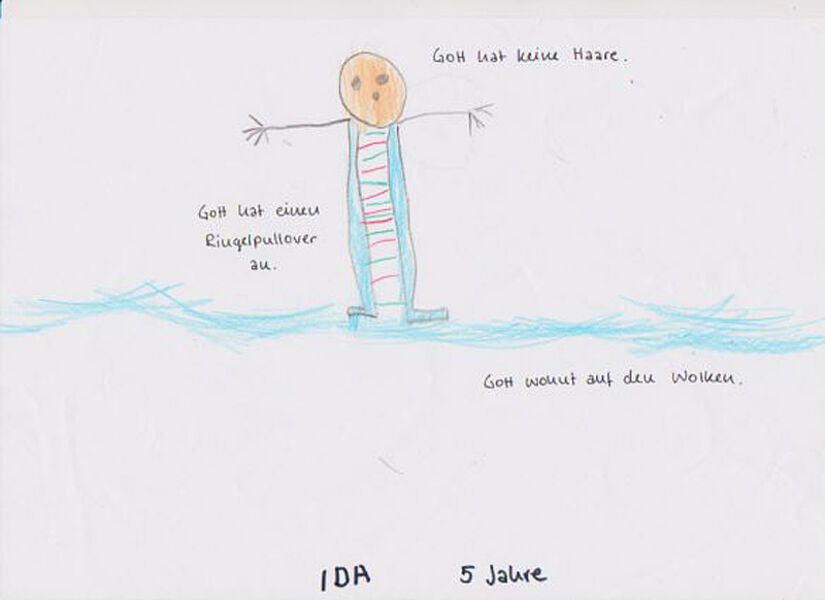 Gott hat keine Haare.
Gott hat einen
Ringelpullover
an.
Gott wohnt auf den Wolken.
IDA 5 Jahre